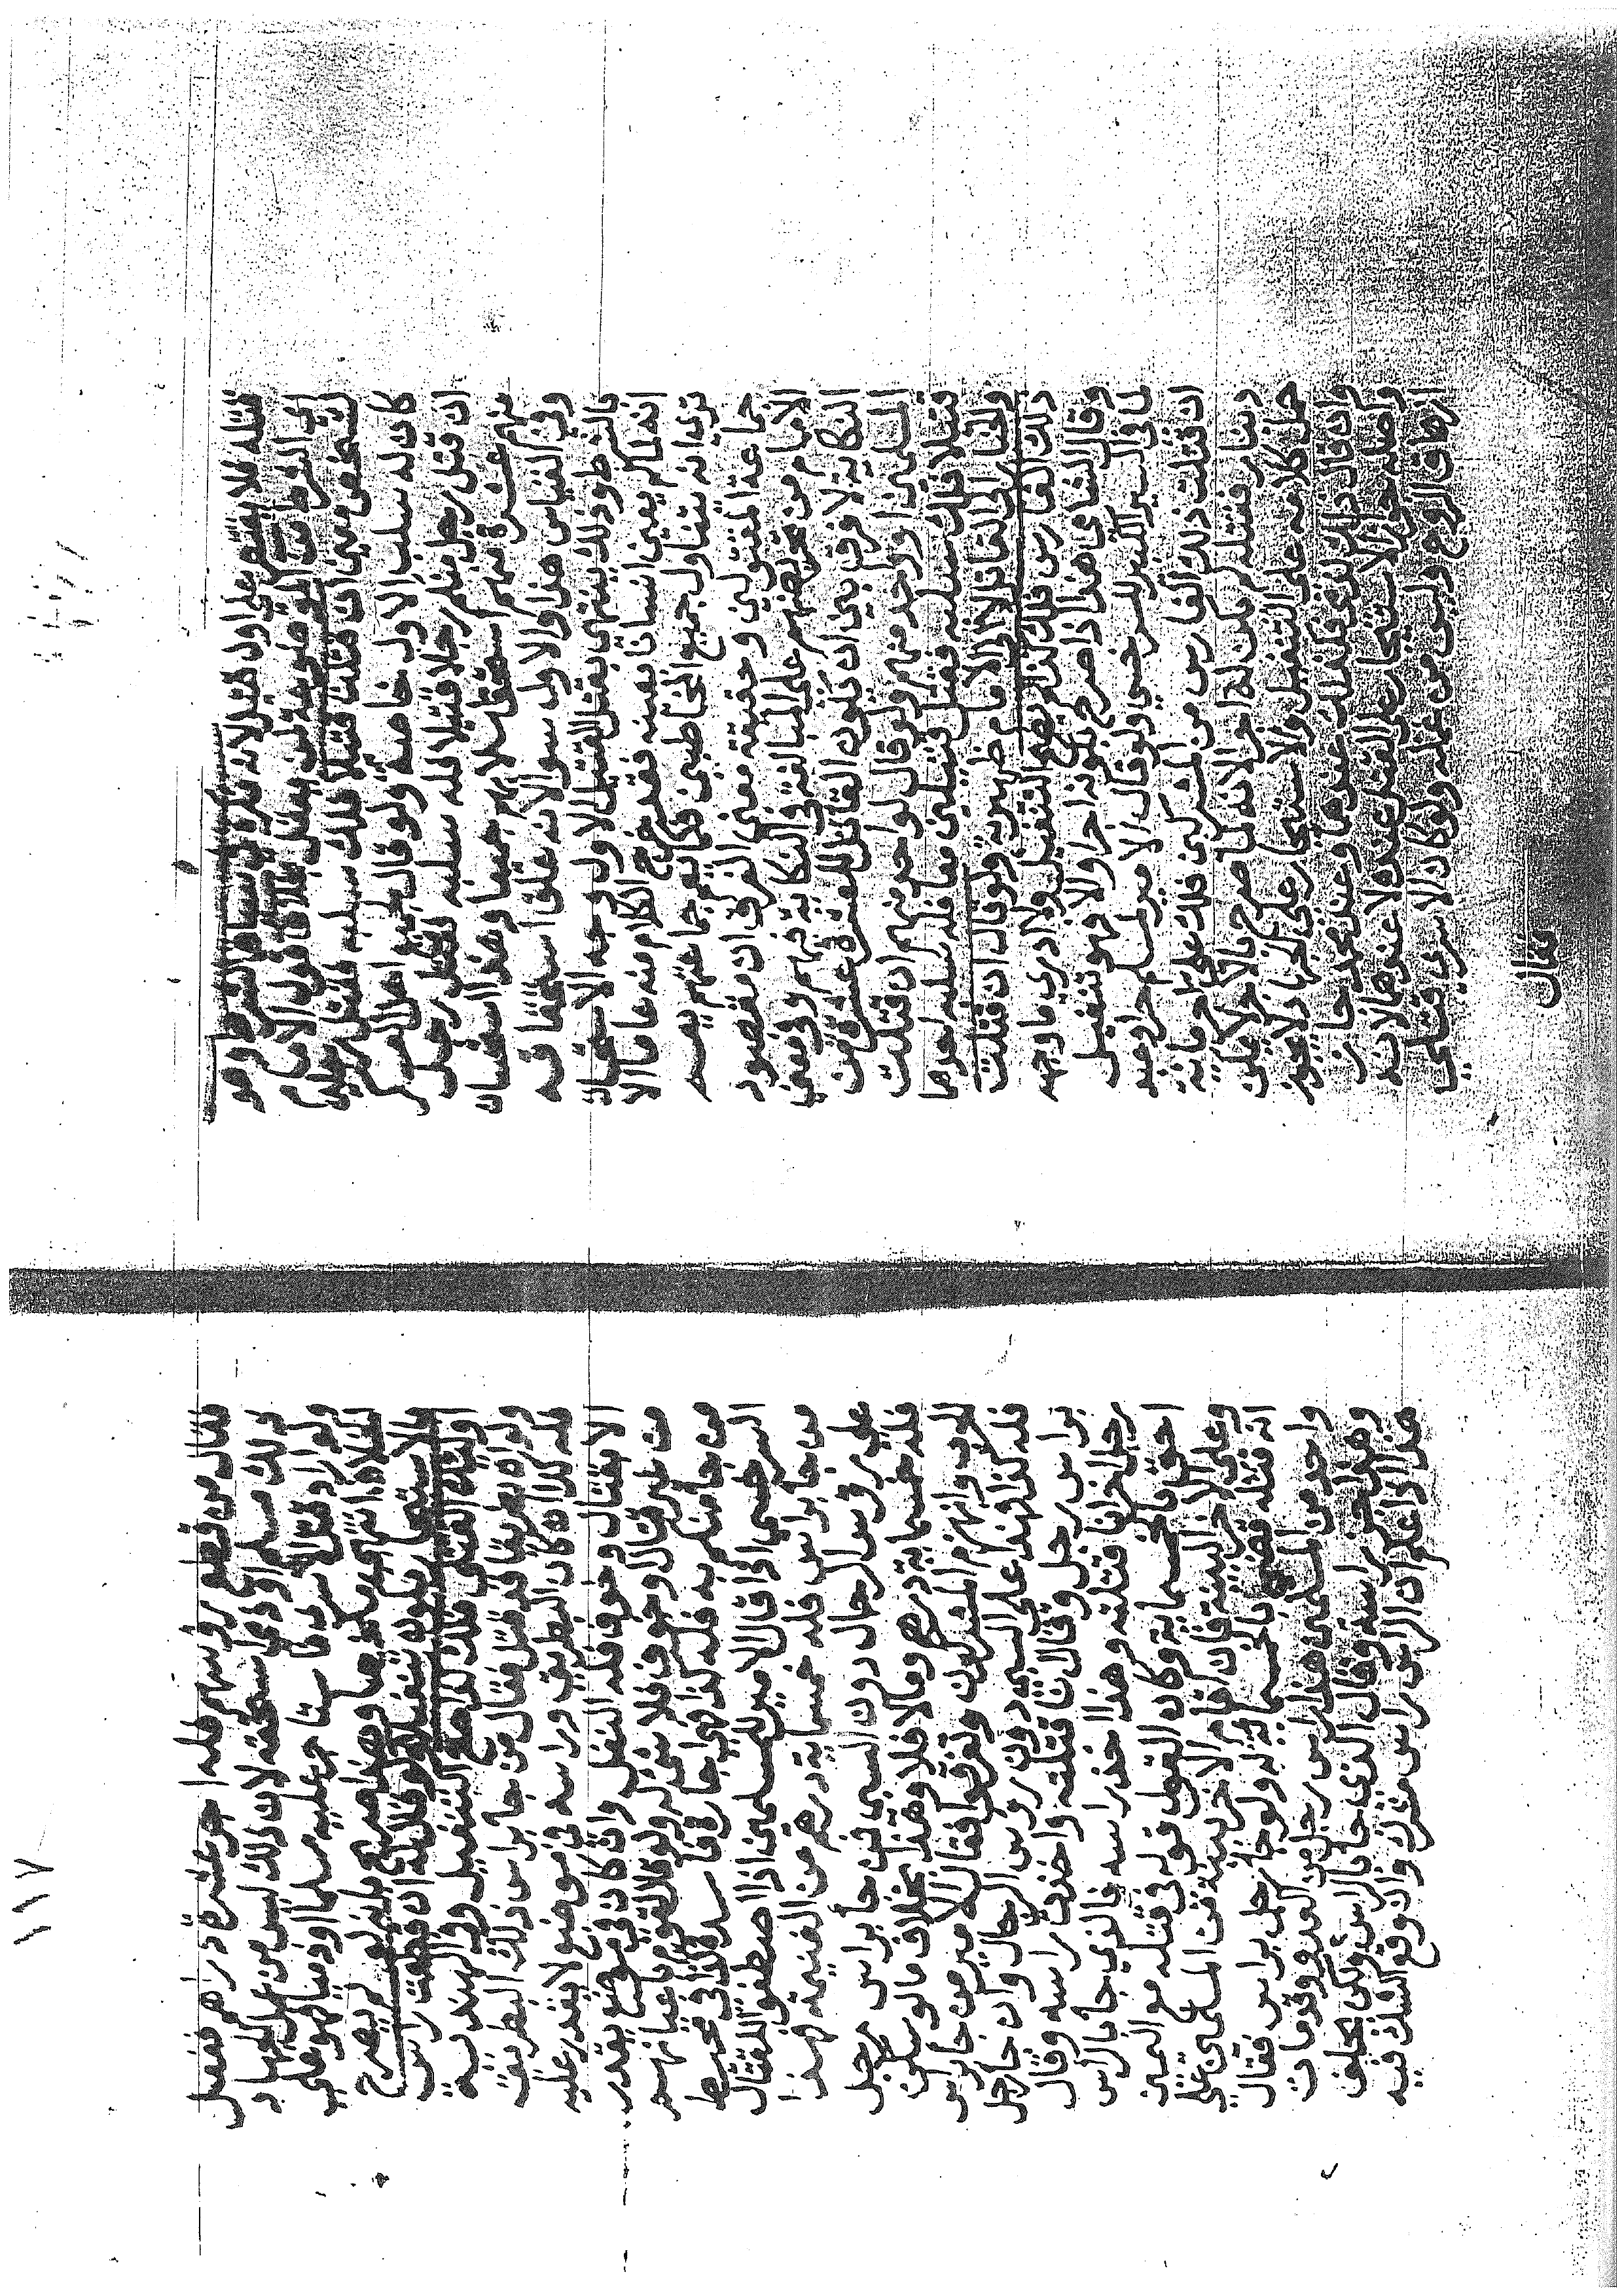 قتله فلا يتعم عداول قتيل لانه نكرة في سياق الشرط وهو
اي الشرط من المواضع التي قول الامام
لشخص معين ان قتلت قتيلا فلك سلبه فقتل رجلين
كان له سلب الاول خاصة ولو قال لجميع اهل العسكر
ان قتل رجل منكم رجلا قتيلا فله سلبه فقتل رجل
منهم عشرة منهم استحق اسلابهم جميعا وهذا استحسان
وفي القياس هذا والاول سوا لانه علق استحقاقه
بالشرط وذلك ينتهي بقتل القتيل الاول وجه الاستحسان
انه لما لم يعين انسانا بعينه فقد خرج الكلام منه عاما الا
ترى انه يتناول جميع المخاطبين فكما يعم جماعتهم يعم
جماعة المقتولين وحقيقة معنى الفرق ان مقصود
الامام من تحريضهم على المبالغة في النكاية فيهم وفي معنى
النكاية لا فرق بين ان يكون القاتل للعشرة عشرة من
المسلمين او واحد منهم ولو قال لواحد منهم ان قتلت
قتيلا فلك سلبه فقتل قتيلين معا فله سلب احدهما
والخيار الى القاتل لا الى الامام ظهيرية ولو قال ان قتلت
ذلك الفارس فلك كذا لم يصح التنفيل ولا ادري ما وجهه
وقال الشامي هذا اذا صرح بكونه اجرا والا فهو تنفيل
لما في السير الكبير للسرخسي ولو قال الامير لمسلم حر او عبد
ان قتلت ذلك الفارس من المشركين فلك علي اجر ماية
دينار فقتله لم يكن له اجر لانه لما صرح بالاجر لا يمكن
حمل كلامه على التنفيل والاستيجار على الجهاد لا يجوز
وان قال ذلك لذمي فكذلك عندهما وعند محمد جاز
واصله جواز الاستيجار على القتل عنده ولا عندهما لانه
ازهاق الروح وليس من عمله ولو كان الاسرى قتلى
فقال
١١٧
فقال من قطع رؤسهم فله اجر عشرة دراهم ففعل
ذلك مسلم او ذمي استحقه لان ذلك ليس من عمل الجهاد
ولو اراد قتل الاسرى فاستاجر عليه مسلما او ذميا فهو على
الخلاف انتهى ملخصا وهذا صريح بانه لو لم يصرح
بالاستيجار يكون تنفيلا ولو قال له ان قطعت راس
اولئك القتلى فلك كذا صح التنفيل وفي الهندية
ولو راو بطريقا قد قتل فقال من جا براس ذلك البطريق
فله كذا ان كان البطريق وراسه في موضع لا يقدر عليه
الا بقتال وخوف فله النفل وان كان في موضع يقدر
من غير قتال وخوف فلا شي له ولو قال لقوم باعيانهم
من جا منكم به فله كذا فهي اجارة فاسدة وفي محيط
السرخسي اذا قال الامير للمسلمين اذا اصطفوا للقتال
من جا براس فله خمسماية درهم من الغنيمة فهذا
على رؤس الرجال دون السبي فمن جا براس رجل
فله خمسماية درهم والا فلا وهذا بخلاف ما لو سكن
لعدو وانهزم المشركون وتفرقوا فقال الامير من جا براس
فله كذا فهذا على السبي دون روس الرجال وان جا رجل
براس رجل وقال انا قتلته واخذت راسه وقال
رجل اخر انا قتلته وهذا اخذ راسه فالذي جا بالراس
احق بالخمسماية وكان القول قوله في قتله مع اليمين
وعلى الاخر البينة فان اقام الاخر بينة من المسلمين على
انه قتله قضى بالخمسماية له ولو جا رجل براس فقال
واحد من المسلمين هذا راس رجل من العدو وقد مات
وهذا جز راسه وقال الذي جا بالراس ولكن يحلف
هذا اذا علم ان الراس راس مشرك وان وقع الشك فيه